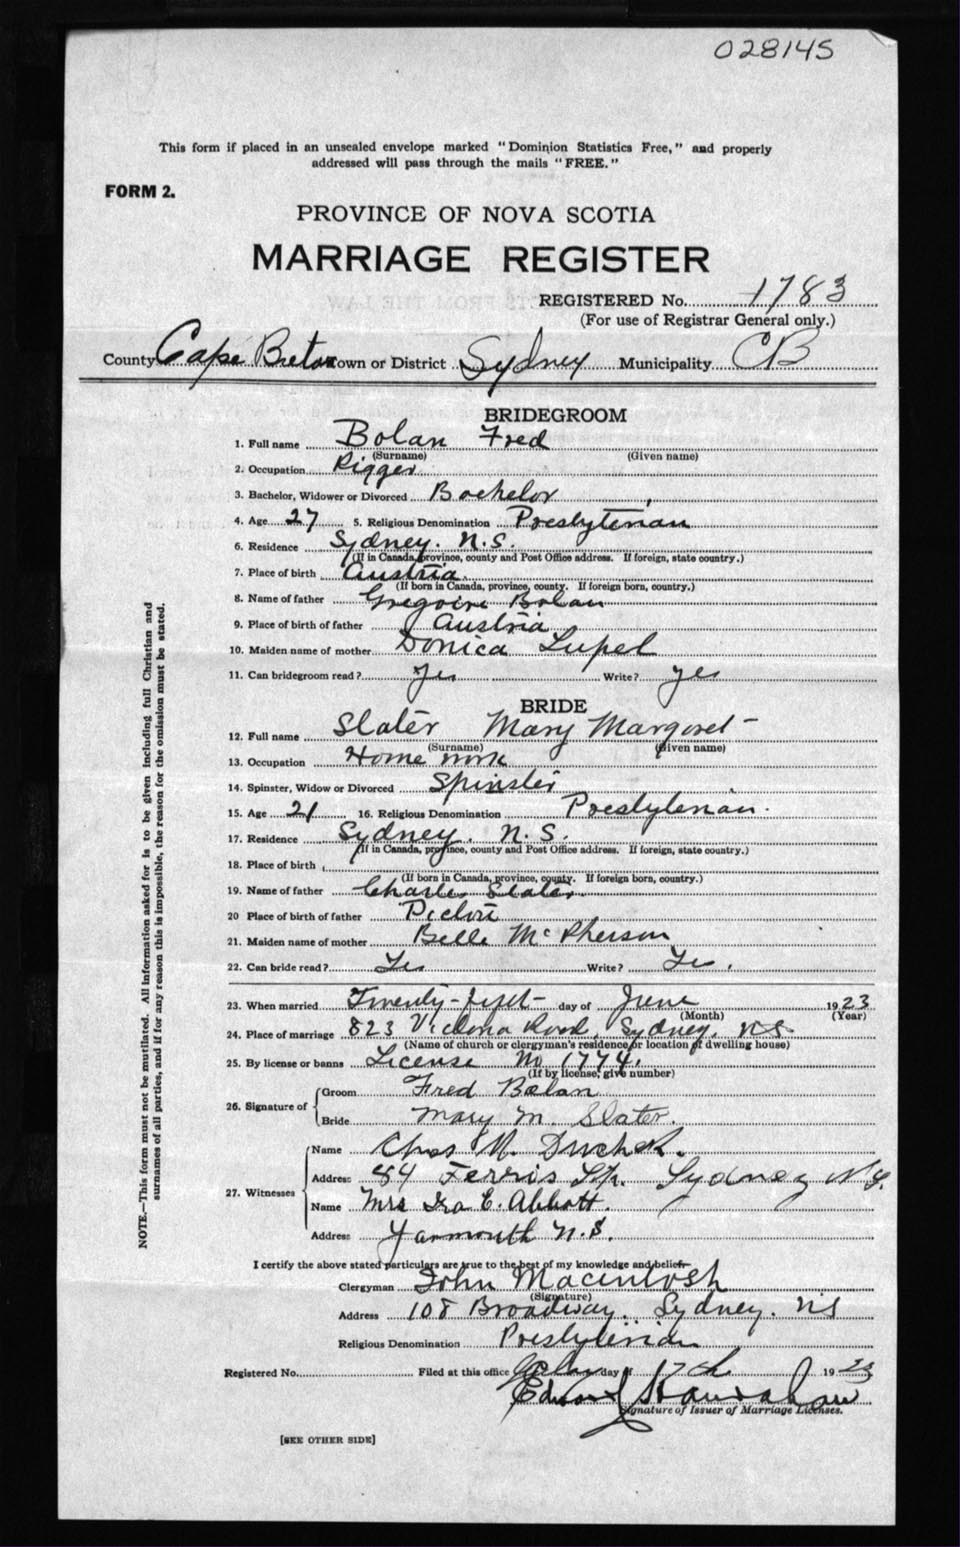 028145
This form if placed in an unsealed envelope marked "Dominion Statistics Free," and properly
addressed will pass through the mails "FREE."
FORM 2.
PROVINCE OF NOVA SCOTIA
MARRIAGE REGISTER
REGISTERED No. 1783
(For use of Registrar General only.)
County Cape Breton Town or District Sydney Municipality CB
BRIDEGROOM
1. Full name Bolan Fred
(Surname) (Given name)
2. Occupation Rigger
3. Bachelor, Widower or Divorced Bachelor
4. Age 27 5. Religious Denomination Presbyterian
6. Residence Sydney. N.S.
(If in Canada, province, county and Post Office address. If foreign, state country.)
7. Place of birth Austria
(If born in Canada, province, county. If foreign born, country.)
8. Name of father Gregoire Bolan
9. Place of birth of father Austria
10. Maiden name of mother Donica Lupel
11. Can bridegroom read? Yes Write? Yes
BRIDE
12. Full name Slater Mary Margaret
(Surname) (Given name)
13. Occupation Home work
14. Spinster, Widow or Divorced Spinster
15. Age 21 16. Religious Denomination Presbyterian.
17. Residence Sydney. N.S.
(If in Canada, province, county and Post Office address. If foreign, state country.)
18. Place of birth
(If born in Canada, province, county. If foreign born, country.)
19. Name of father Charles Slater
20 Place of birth of father Pictou
21. Maiden name of mother Belle McPherson
22. Can bride read? Yes Write? Yes.
23. When married Twenty-first day of June 1923
(Month) (Year)
24. Place of marriage 823 Victoria Road, Sydney, NS
(Name of church or clergyman's residence or location of dwelling house)
25. By license or banns License No 1774.
(If by license, give number)
26. Signature of
Groom Fred Bolan
Bride Mary M. Slater.
27. Witnesses
Name Chas
Address 84 Ferris Sydney N.S.
Name Mrs Ira E. Abbott.
Address Yarmouth N.S.
I certify the above stated particulars are true to the best of my knowledge and belief
Clergyman John Macintosh
(Signature)
Address 108 Broadway. Sydney. NS
Religious Denomination Presbyterian
Registered No. Filed at this office day of 17th 1923
Signature of Issuer of Marriage Licenses.
[SEE OTHER SIDE]
NOTE.—This form must not be mutilated. All information asked for is to be given including full Christian and
surnames of all parties, and if for any reason this is impossible, the reason for the omission must be stated.